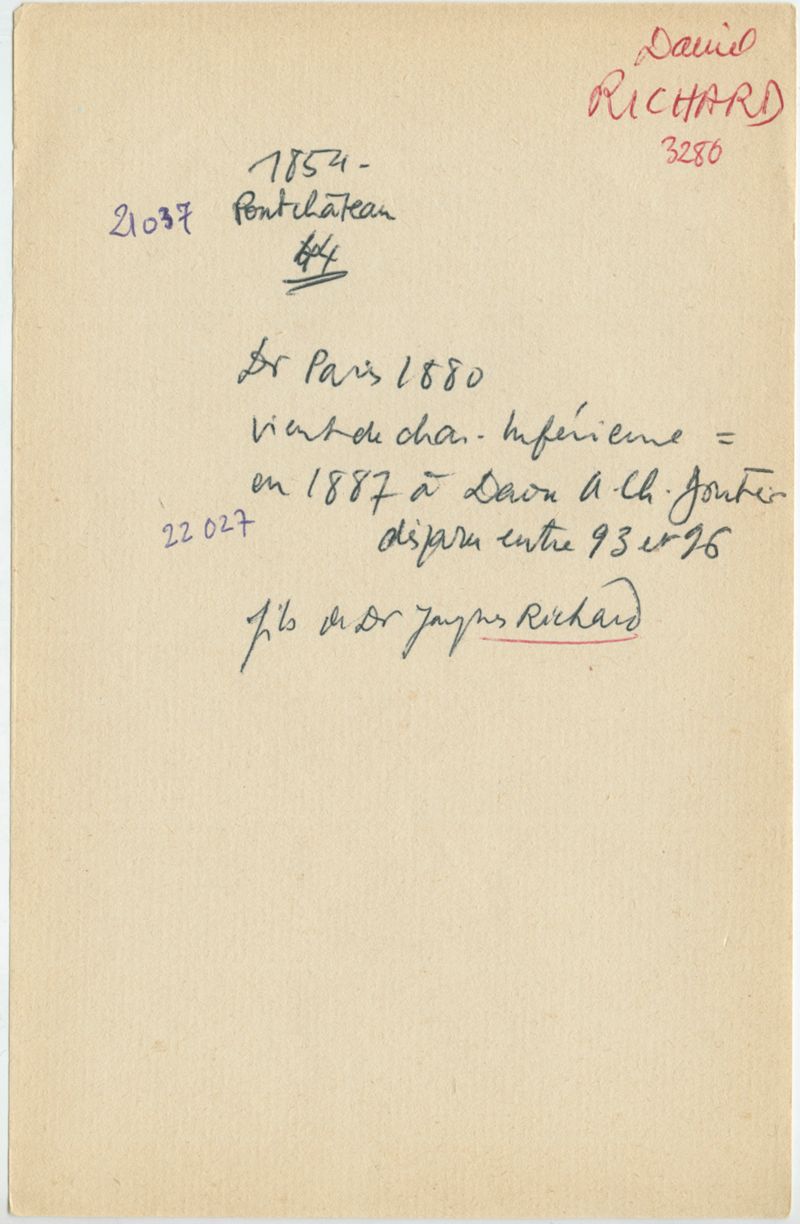 Daniel
RICHARD
3286
1854 -
21037 Pontchâteau
44
Dr Paris 1880
vient de char. Inférieure =
en 1887 à Daon A. Ch. Gontier
22027 disparu entre 93 et 96
fils de Dr Jacques Richard